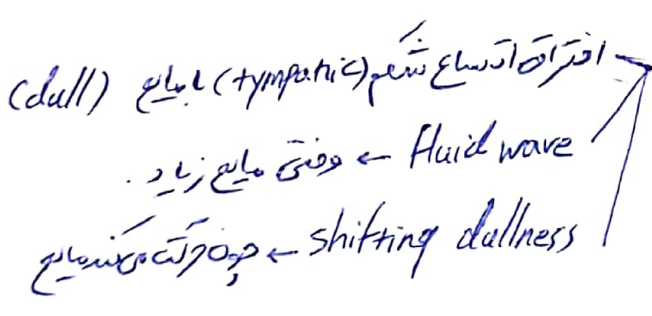 افتراق اتساع شکم (tympanic) با مایع (dull)
Fluid wave ← وقتی مایع زیاد .
shifting dullness ← چون حرکت می‌کند مایع